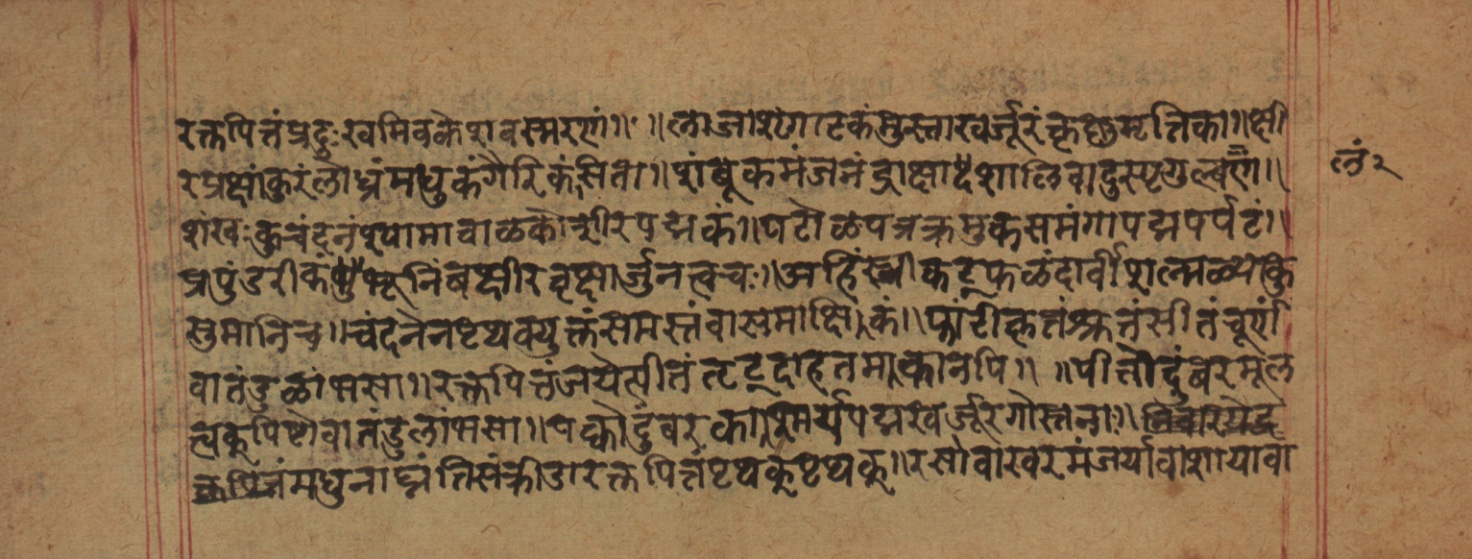 रक्तपित्तंप्रदुःखमिवकेशवस्मरणं॥ ॥लाजाशृंगाटकंमुस्ताखर्जूरंकृष्णमृत्तिका॥क्षी
रप्रक्षांकुरंलोध्रंमधुकंगैरिकंसिता॥शंबूकमंजनंद्राक्षा शालिवादुस्पृगुत्बणं॥
शंखःकुचंदनंश्यामावाळकोशीरपद्मकं॥पटोळंपत्रक्रमुकसमंगापद्मपर्पटं॥
प्रपुंडरीकं निंबक्षीरवृक्षार्जुनत्वचः॥अहिंस्त्री कट्फळंदार्वीशाल्मळ्याःकु
सुमानिच॥चंदनेनपृथक्युक्तंसमस्तंवासमाक्षिकं॥ फांटीकृतंशृतंसीतंचूर्णं
वातंडुळांभसा॥रक्तपित्तंजयेत्पीतंतृट्दाहतमाकानपि॥ ॥पीत्तोदुंबरमूल
त्वक्पिष्टावातंडुलांभसा॥पक्वोदुंबरकाश्मर्यपद्मखर्जूरगोस्तनाः॥
मधुनाघ्नंतिसंलीढारक्तपित्तंपृथक्पृथक्॥रसोवाखरमंजर्यावाशायावा
लं२